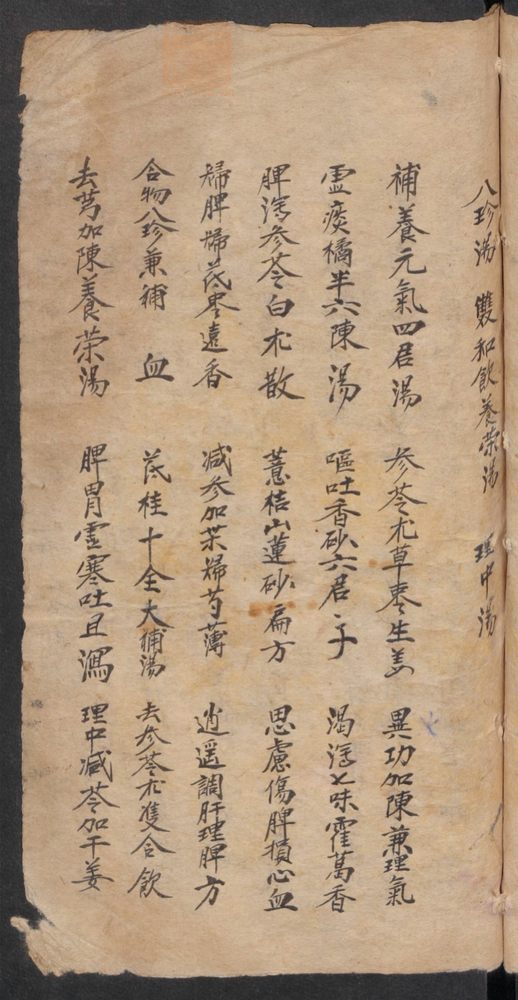 八珍湯 雙和飲 養荣湯 理中湯
補養元氣四君湯 參苓朮草棗生姜 異功加陳兼理氣
虛痰橘半六陳湯 嘔吐香砂六君子 渴瀉七味霍葛香
脾瀉參苓白朮散 薏桔山蓮砂扁方 思慮傷脾損心血
歸脾歸芪棗遠香 減參加柴歸芍薄 逍遥調肝理脾方
合物八珍兼補血 芪桂十全大補湯 去參苓朮隻合飲
去芎加陳養荣湯 脾胃虛寒吐且瀉 理中減苓加干姜